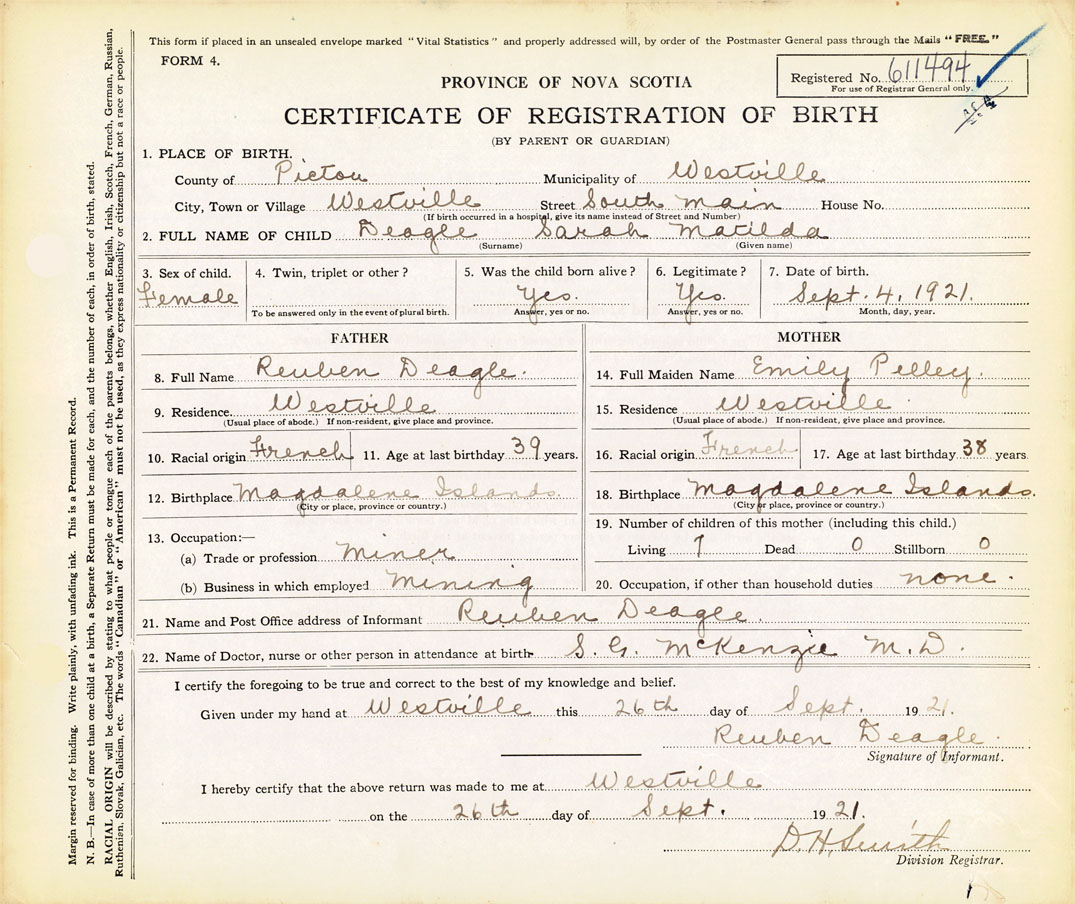 This form if placed in an unsealed envelope marked "Vital Statistics" and properly addressed will, by order of the Postmaster General pass through the Mails "FREE."
FORM 4.
Registered No. 611494
For use of Registrar General only.
PROVINCE OF NOVA SCOTIA
CERTIFICATE OF REGISTRATION OF BIRTH
(BY PARENT OR GUARDIAN)
1. PLACE OF BIRTH.
County of Pictou Municipality of Westville
City, Town or Village Westville Street South Main House No.
(If birth occurred in a hospital, give its name instead of Street and Number)
2. FULL NAME OF CHILD Deagle Sarah Matilda
(Surname) (Given name)
3. Sex of child. 4. Twin, triplet or other? 5. Was the child born alive? 6. Legitimate? 7. Date of birth.
Female Yes. Yes. Sept. 4, 1921.
To be answered only in the event of plural birth. Answer, yes or no. Answer, yes or no. Month, day, year.
FATHER
8. Full Name Reuben Deagle.
9. Residence. Westville
(Usual place of abode.) If non-resident, give place and province.
10. Racial origin French 11. Age at last birthday 39 years.
12. Birthplace Magdalene Islands
(City or place, province or country.)
13. Occupation:—
(a) Trade or profession Miner
(b) Business in which employed Mining
MOTHER
14. Full Maiden Name Emily Pelley.
15. Residence Westville.
(Usual place of abode.) If non-resident, give place and province.
16. Racial origin French 17. Age at last birthday 38 years
18. Birthplace Magdalene Islands.
(City or place, province or country.)
19. Number of children of this mother (including this child.)
Living 7 Dead 0 Stillborn 0
20. Occupation, if other than household duties none.
21. Name and Post Office address of Informant Reuben Deagle.
22. Name of Doctor, nurse or other person in attendance at birth S. G. McKenzie M.D.
I certify the foregoing to be true and correct to the best of my knowledge and belief.
Given under my hand at Westville this 26th day of Sept. 1921.
Reuben Deagle.
Signature of Informant.
I hereby certify that the above return was made to me at Westville
on the 26th day of Sept. 1921.
D. H. Smith
Division Registrar.
Margin reserved for binding. Write plainly, with unfading ink. This is a Permanent Record.
N. B.—In case of more than one child at a birth, a Separate Return must be made for each, and the number of each, in order of birth, stated.
RACIAL ORIGIN will be described by stating to what people or tongue each of the parents belongs, whether English, Irish, Scotch, French, German, Russian,
Ruthenian, Slovak, Galician, etc. The words "Canadian" or "American" must not be used, as they express nationality or citizenship but not a race or people.